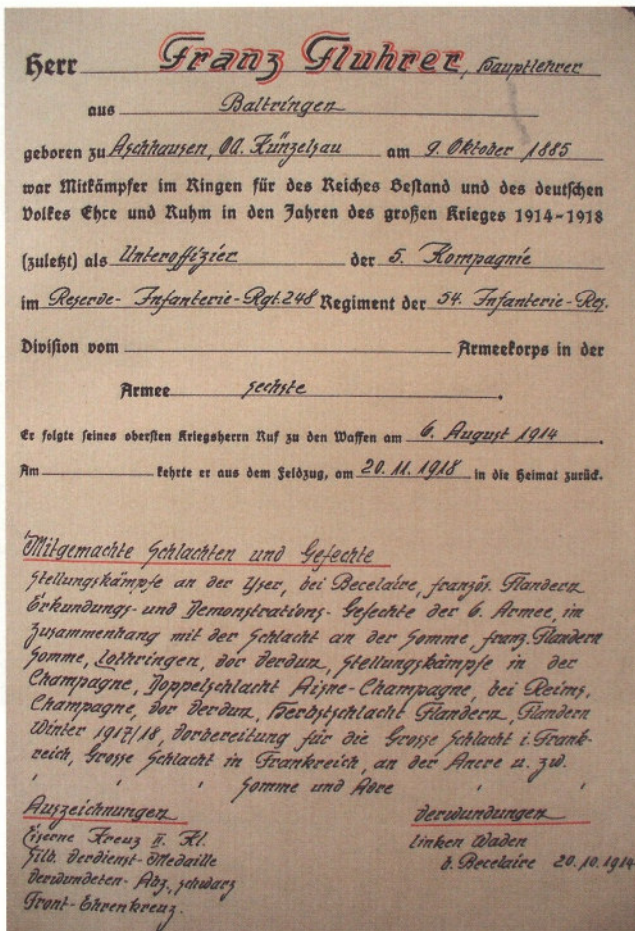 Herr Franz Fluhrer, Hauptlehrer
aus Baltringen
geboren zu Aschhausen, OA. Künzelsau am 9. Oktober 1885
war Mitkämpfer im Ringen für des Reiches Bestand und des deutschen
Volkes Ehre und Ruhm in den Jahren des großen Krieges 1914-1918
(zuletzt) als Unteroffizier der 5. Kompagnie
im Reserve-Infanterie-Rgt. 248 Regiment der 54. Infanterie-Res.
Division vom Armeekorps in der
Armee sechste .
Er folgte seines obersten Kriegsherrn Ruf zu den Waffen am 6. August 1914 .
Am kehrte er aus dem Feldzug, am 20.11.1918 in die Heimat zurück.
Mitgemachte Schlachten und Gefechte
Stellungskämpfe an der Yser, bei Becelaire, französ. Flandern
Erkundungs- und Demonstrations-Gefechte der 6. Armee, im
Zusammenhang mit der Schlacht an der Somme, franz. Flandern
Somme, Lothringen, vor Verdun, Stellungskämpfe in der
Champagne, Doppelschlacht Aisne-Champagne, bei Reims,
Champagne, vor Verdun, Herbstschlacht Flandern, Flandern
Winter 1917/18, Vorbereitung für die Grosse Schlacht i. Frank-
reich, Grosse Schlacht in Frankreich, an der Ancre u. zw.
' ' ' Somme und Avre ' '
Auszeichnungen Verwundungen
Eiserne Kreuz II. Kl. linken Waden
Silb. Verdienst-Medaille b. Becelaire 20.10.1914
Verwundeten-Abz, schwarz
Front-Ehrenkreuz.